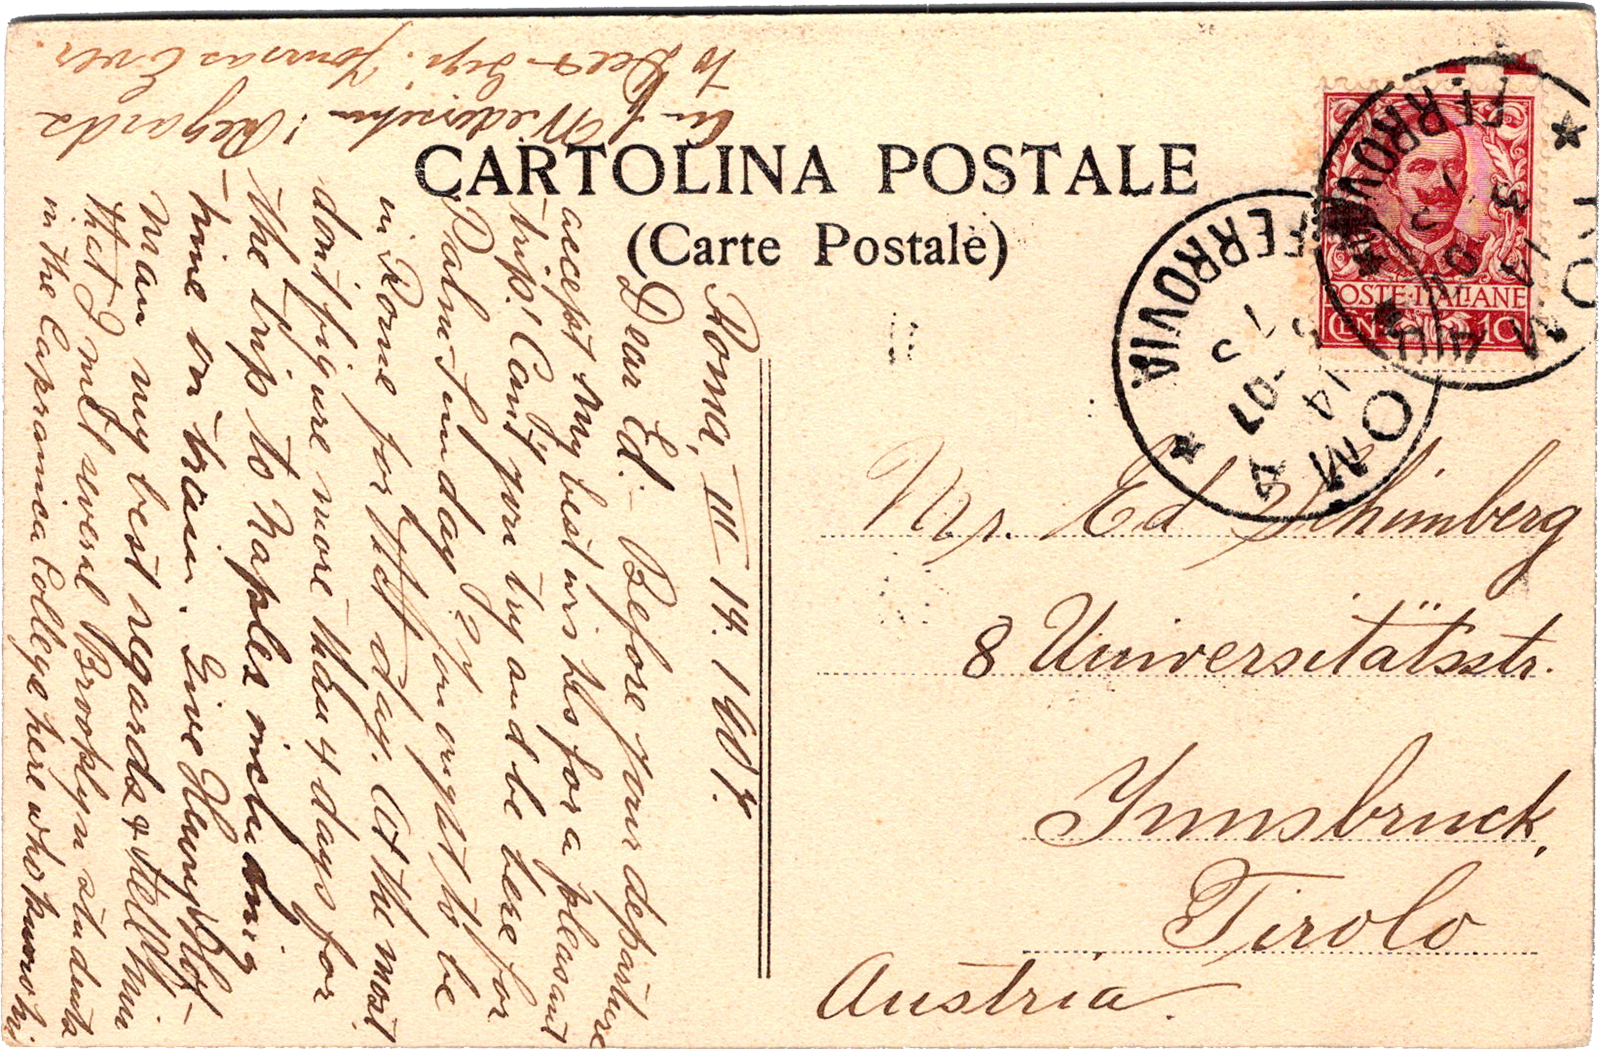 CARTOLINA POSTALE
(Carte Postale)
POSTE ITALIANE
CENT. 10
ROMA
FERROVIA
ROMA
FERROVIA
14
07
Roma, III – 14. 1907.
Dear Ed:– Before your departure
accept my best wishes for a pleasant
trip! Can't you try and be here for
Palm Sunday? You ought to be
in Rome for that day. At the most
don't figure more than 4 days for
the trip to Naples including
time on train. Give Henry
Man my best regards & tell him
that I met several Brooklyn students
in the Capranica College here who know him
Auf Wiedersehn! Regards
to Yours as Ever.
Mr. Ed Schimberg
8 Universitätsstr.
Innsbruck,
Tirolo
Austria.